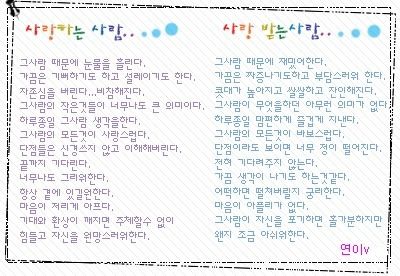 사랑하는 사람..
그사람 때문에 눈물을 흘린다.
가끔은 기뻐하기도 하고 설레이기도 한다.
자존심을 버린다...비참해진다.
그사람의 작은것들이 너무나도 큰 의미이다.
하루종일 그사람 생각을한다.
그사람의 모든것이 사랑스럽다.
단점들은 신경쓰지 않고 이해해버린다.
끝까지 기다린다.
너무나도 그리워한다.
항상 곁에 있길원한다.
마음이 저리게 아프다.
기대와 환상이 깨지면 주체할수 없이
힘들고 자신을 원망스러워한다.
사랑 받는사람..
그사람 때문에 재밌어한다.
가끔은 짜증나기도하고 부담스러워 한다.
콧대가 높아지고 쌀쌀하고 잔인해진다.
그사람이 무엇을하던 아무런 의미가 없다.
하루종일 맘편하게 즐겁게 지낸다.
그사람의 모든것이 바보스럽다.
단점이라도 보이면 너무 정이 떨어지다.
전혀 기다려주지 않는다.
가끔 생각이 나기도 하는것같다.
어떠하면 떨쳐버릴지 궁리한다.
마음의 아플리가 없다.
그사람이 자신을 포기하면 홀가분하지만
왠지 조금 아쉬워한다.
연이v